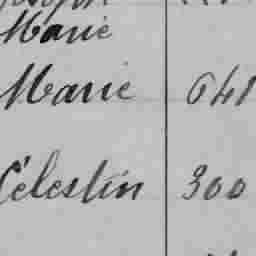 Marie
Marie 641
Célestin 300